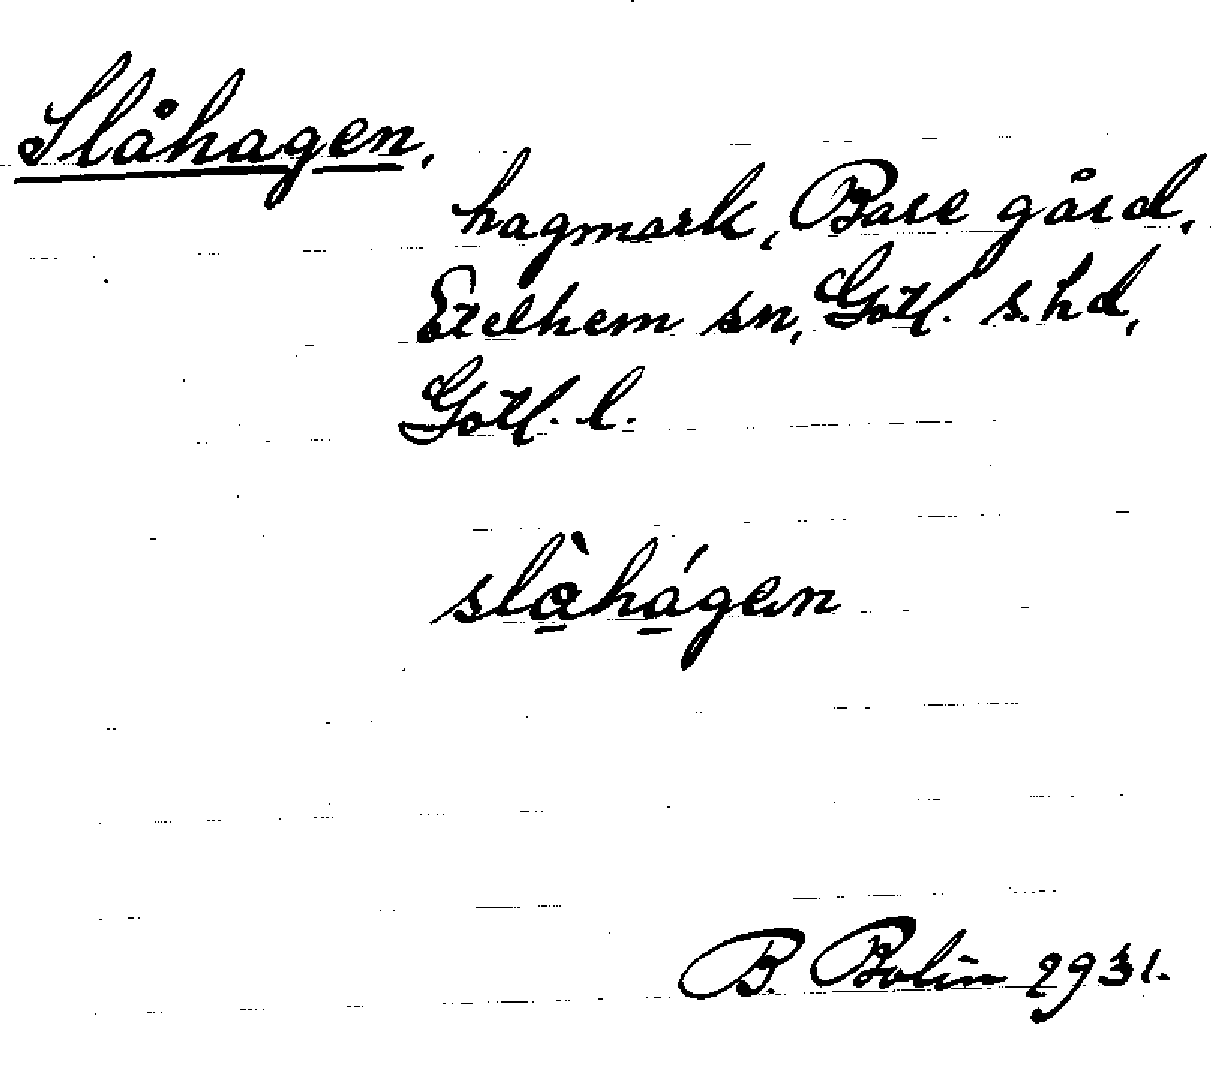 Slåhagen,
hagmark, Bare gård,
Etelhem sn, Gotl. s. hd,
Gotl. l.
slàhágen
B. Bolin 1931.